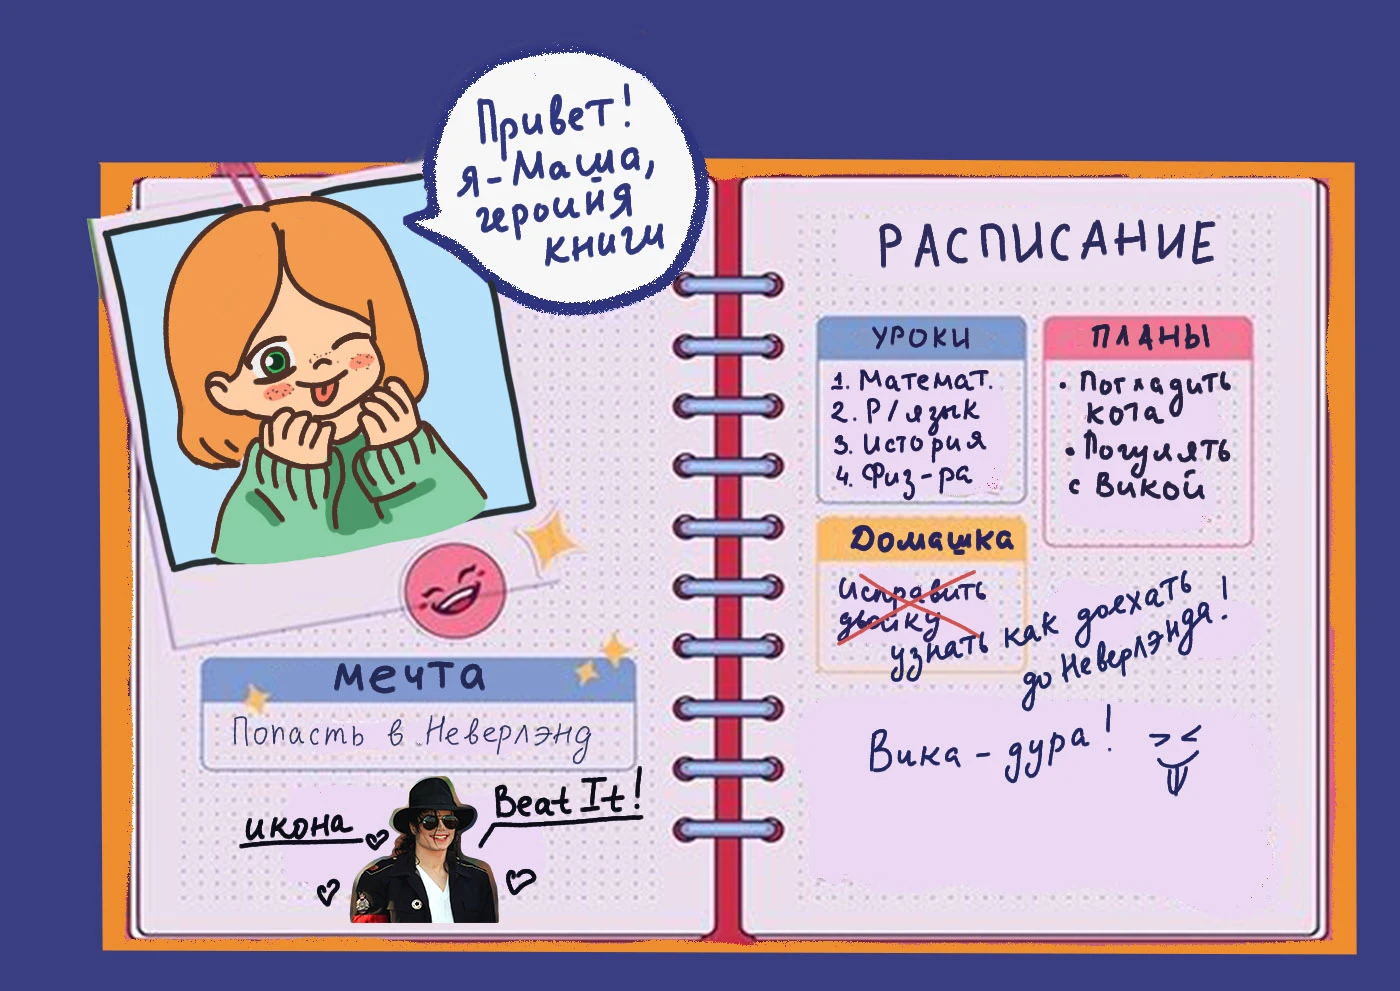 Привет!
я - Маша,
героиня
книги
мечта
Попасть в Неверлэнд
икона
Beat It!
РАСПИСАНИЕ
УРОКИ
1. Математ.
2. Р/язык
3. История
4. Физ-ра
ПЛАНЫ
• Погладить
кота
• Погулять
с Викой
Домашка
Исправить
двойку
узнать как доехать
до Неверлэнда!
Вика - дура!